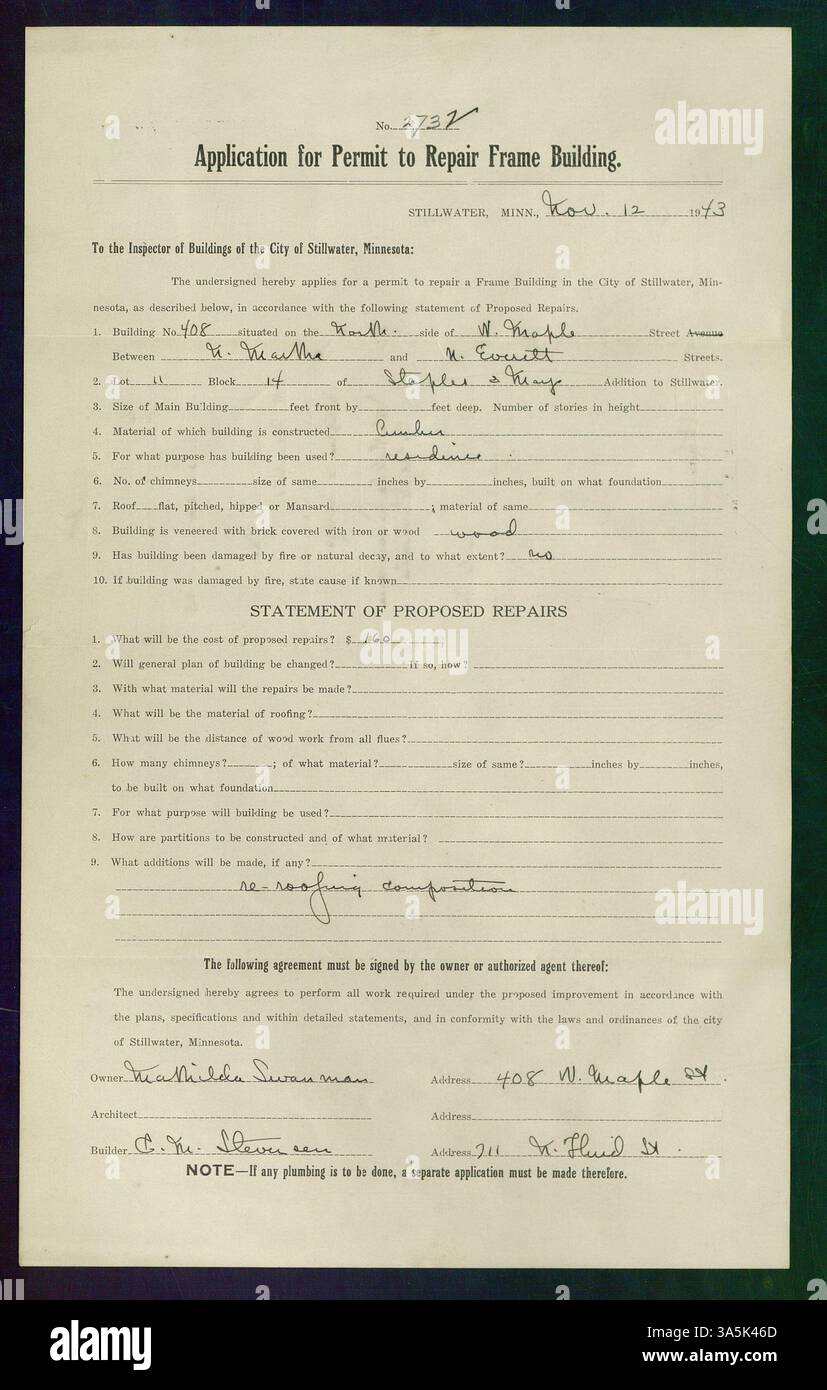 No. 2732
Application for Permit to Repair Frame Building.
STILLWATER, MINN., Nov. 12 1943
To the Inspector of Buildings of the City of Stillwater, Minnesota:
The undersigned hereby applies for a permit to repair a Frame Building in the City of Stillwater, Min-
nesota, as described below, in accordance with the following statement of Proposed Repairs.
1. Building No. 408 situated on the North side of W. Maple Street Avenue
Between N. Martha and N. Everett Streets.
2. Lot 11 Block 14 of Staples & Mays Addition to Stillwater.
3. Size of Main Building feet front by feet deep. Number of stories in height
4. Material of which building is constructed Lumber
5. For what purpose has building been used? residence
6. No. of chimneys size of same inches by inches, built on what foundation
7. Roof flat, pitched, hipped or Mansard ; material of same
8. Building is veneered with brick covered with iron or wood wood
9. Has building been damaged by fire or natural decay, and to what extent? no
10. If building was damaged by fire, state cause if known
STATEMENT OF PROPOSED REPAIRS
1. What will be the cost of proposed repairs? $ 160
2. Will general plan of building be changed? if so, how?
3. With what material will the repairs be made?
4. What will be the material of roofing?
5. What will be the distance of wood work from all flues?
6. How many chimneys? ; of what material? size of same? inches by inches,
to be built on what foundation
7. For what purpose will building be used?
8. How are partitions to be constructed and of what material?
9. What additions will be made, if any?
re-roofing composition
The following agreement must be signed by the owner or authorized agent thereof:
The undersigned hereby agrees to perform all work required under the proposed improvement in accordance with
the plans, specifications and within detailed statements, and in conformity with the laws and ordinances of the city
of Stillwater, Minnesota.
Owner Mathilda Swanman Address 408 W. Maple St.
Architect Address
Builder E. M. Stevensen Address 711 N. St.
NOTE—If any plumbing is to be done, a separate application must be made therefore.
alamy
Image ID: 3A5K46D
www.alamy.com